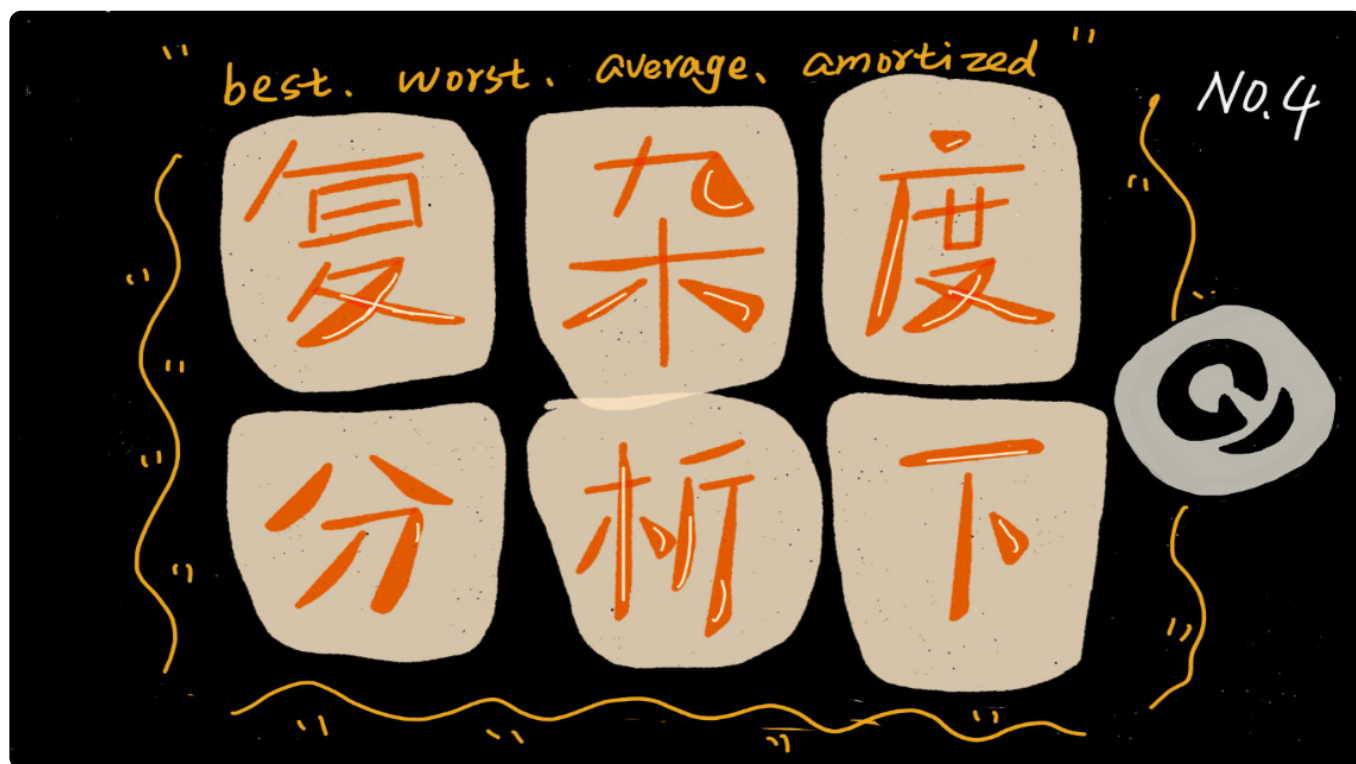 "best. worst. average、amortized"
NO.4
复杂度
分析下